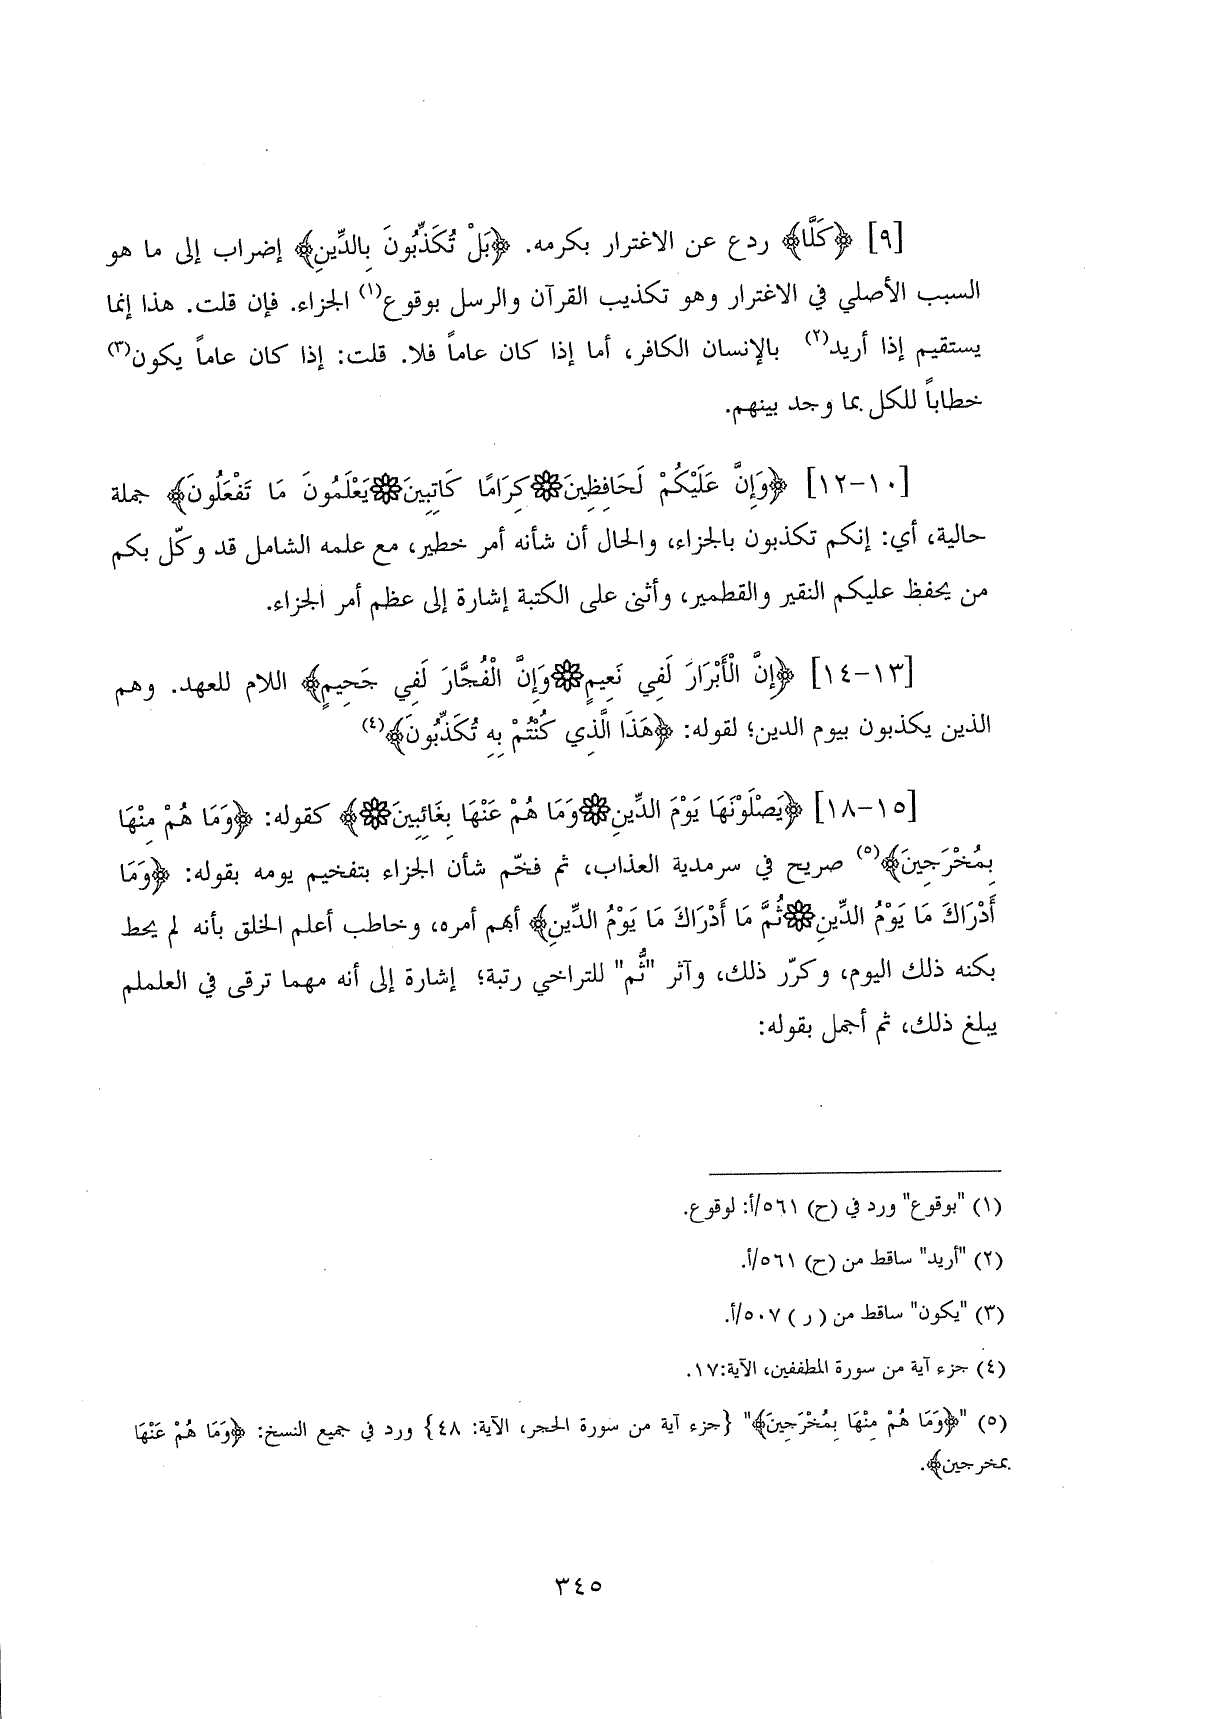 [٩] ﴿كَلَّا﴾ ردع عن الاغترار بكرمه. ﴿بَلْ تُكَذِّبُونَ بِالدِّينِ﴾ إضراب إلى ما هو
السبب الأصلي في الاغترار وهو تكذيب القرآن والرسل بوقوع(١) الجزاء. فإن قلت. هذا إنما
يستقيم إذا أريد(٢) بالإنسان الكافر، أما إذا كان عاماً فلا. قلت: إذا كان عاماً يكون(٣)
خطاباً للكل بما وجد بينهم.
[١٠-١٢] ﴿وَإِنَّ عَلَيْكُمْ لَحَافِظِينَ۞كِرَامًا كَاتِبِينَ۞يَعْلَمُونَ مَا تَفْعَلُونَ﴾ جملة
حالية، أي: إنكم تكذبون بالجزاء، والحال أن شأنه أمر خطير، مع علمه الشامل قد وكّل بكم
من يحفظ عليكم النقير والقطمير، وأثنى على الكتبة إشارة إلى عظم أمر الجزاء.
[١٣-١٤] ﴿إِنَّ الْأَبْرَارَ لَفِي نَعِيمٍ۞وَإِنَّ الْفُجَّارَ لَفِي جَحِيمٍ﴾ اللام للعهد. وهم
الذين يكذبون بيوم الدين؛ لقوله: ﴿هَذَا الَّذِي كُنْتُمْ بِهِ تُكَذِّبُونَ﴾(٤)
[١٥-١٨] ﴿يَصْلَوْنَهَا يَوْمَ الدِّينِ۞وَمَا هُمْ عَنْهَا بِغَائِبِينَ۞﴾ كقوله: ﴿وَمَا هُمْ مِنْهَا
بِمُخْرَجِينَ﴾(٥) صريح في سرمدية العذاب، ثم فخّم شأن الجزاء بتفخيم يومه بقوله: ﴿وَمَا
أَدْرَاكَ مَا يَوْمُ الدِّينِ۞ثُمَّ مَا أَدْرَاكَ مَا يَوْمُ الدِّينِ﴾ أبهم أمره، وخاطب أعلم الخلق بأنه لم يحط
بكنه ذلك اليوم، وكرّر ذلك، وآثر "ثُّم" للتراخي رتبة؛ إشارة إلى أنه مهما ترقى في العلملم
يبلغ ذلك، ثم أجمل بقوله:
(١) "بوقوع" ورد في (ح) ٥٦١/أ: لوقوع.
(٢) "أريد" ساقط من (ح) ٥٦١/أ.
(٣) "يكون" ساقط من ( ر ) ٥٠٧/أ.
(٤) جزء آية من سورة المطففين، الآية:١٧.
(٥) "﴿وَمَا هُمْ مِنْهَا بِمُخْرَجِينَ﴾" {جزء آية من سورة الحجر، الآية: ٤٨} ورد في جميع النسخ: ﴿وَمَا هُمْ عَنْهَا
بمخرجين﴾.
٣٤٥